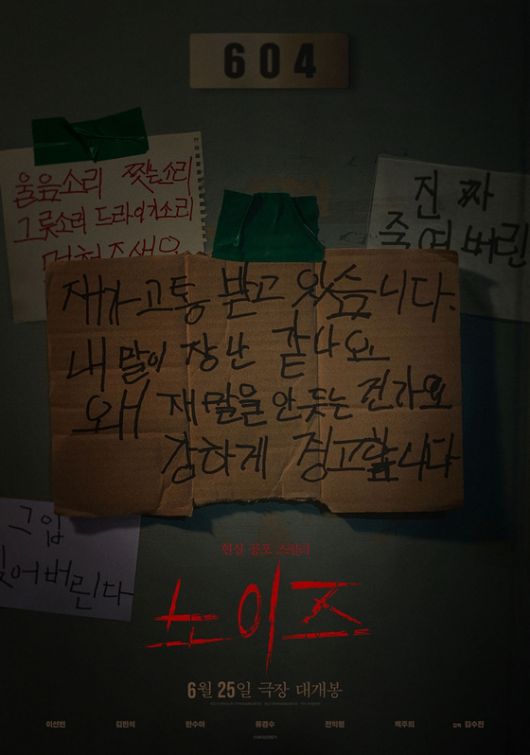 604
울음소리 짖는소리
그릇소리 드라이기소리
멈춰주세요
진짜
죽여버린
재가 고통 받고 있습니다.
내 말이 장난 같나요
왜 재 말을 안 듯는 건가요
강하게 경고합니다
그입
찢어버린다
현실 공포 스릴러
노이즈
6월 25일 극장 대개봉
이선빈 김민석 한수아 류경수 전익령 백주희 감독 김수진